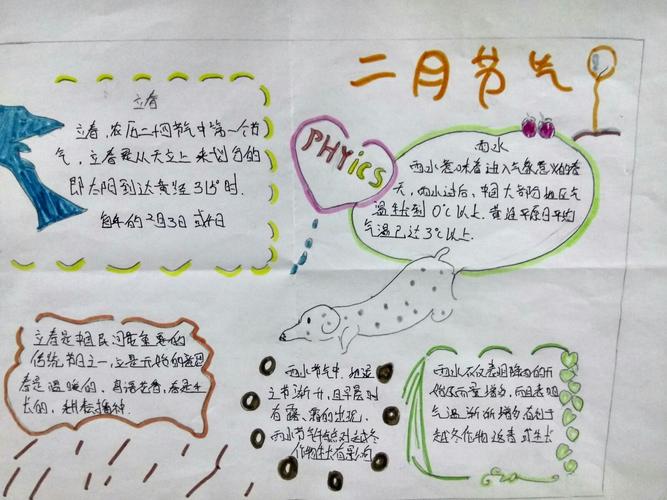 二月节气
立春
立春，农历二十四节气中第一个节
气，立春是从天文上来划分的
即太阳到达黄经315°时.
每年的2月3日或4日
PHYsics
雨水
雨水意味着进入气象意义的春
天，雨水过后，中国大部分地区气
温生长到0℃以上.黄淮平原日平均
气温已达3℃以上.
立春是中国民间最重要的
传统节日之一，立是开始的意思
春是温暖的，鸟语花香，春是生
长的，耕耘播种.
雨水节气中，地温
立节渐升，且早晨时
有露、霜的出现.
雨水节气时给对越冬
作物生长有影响
雨水不仅表明降雨的开
始及雨量增多，而且表明
气温渐渐增力在利于
越冬作物返青或生长